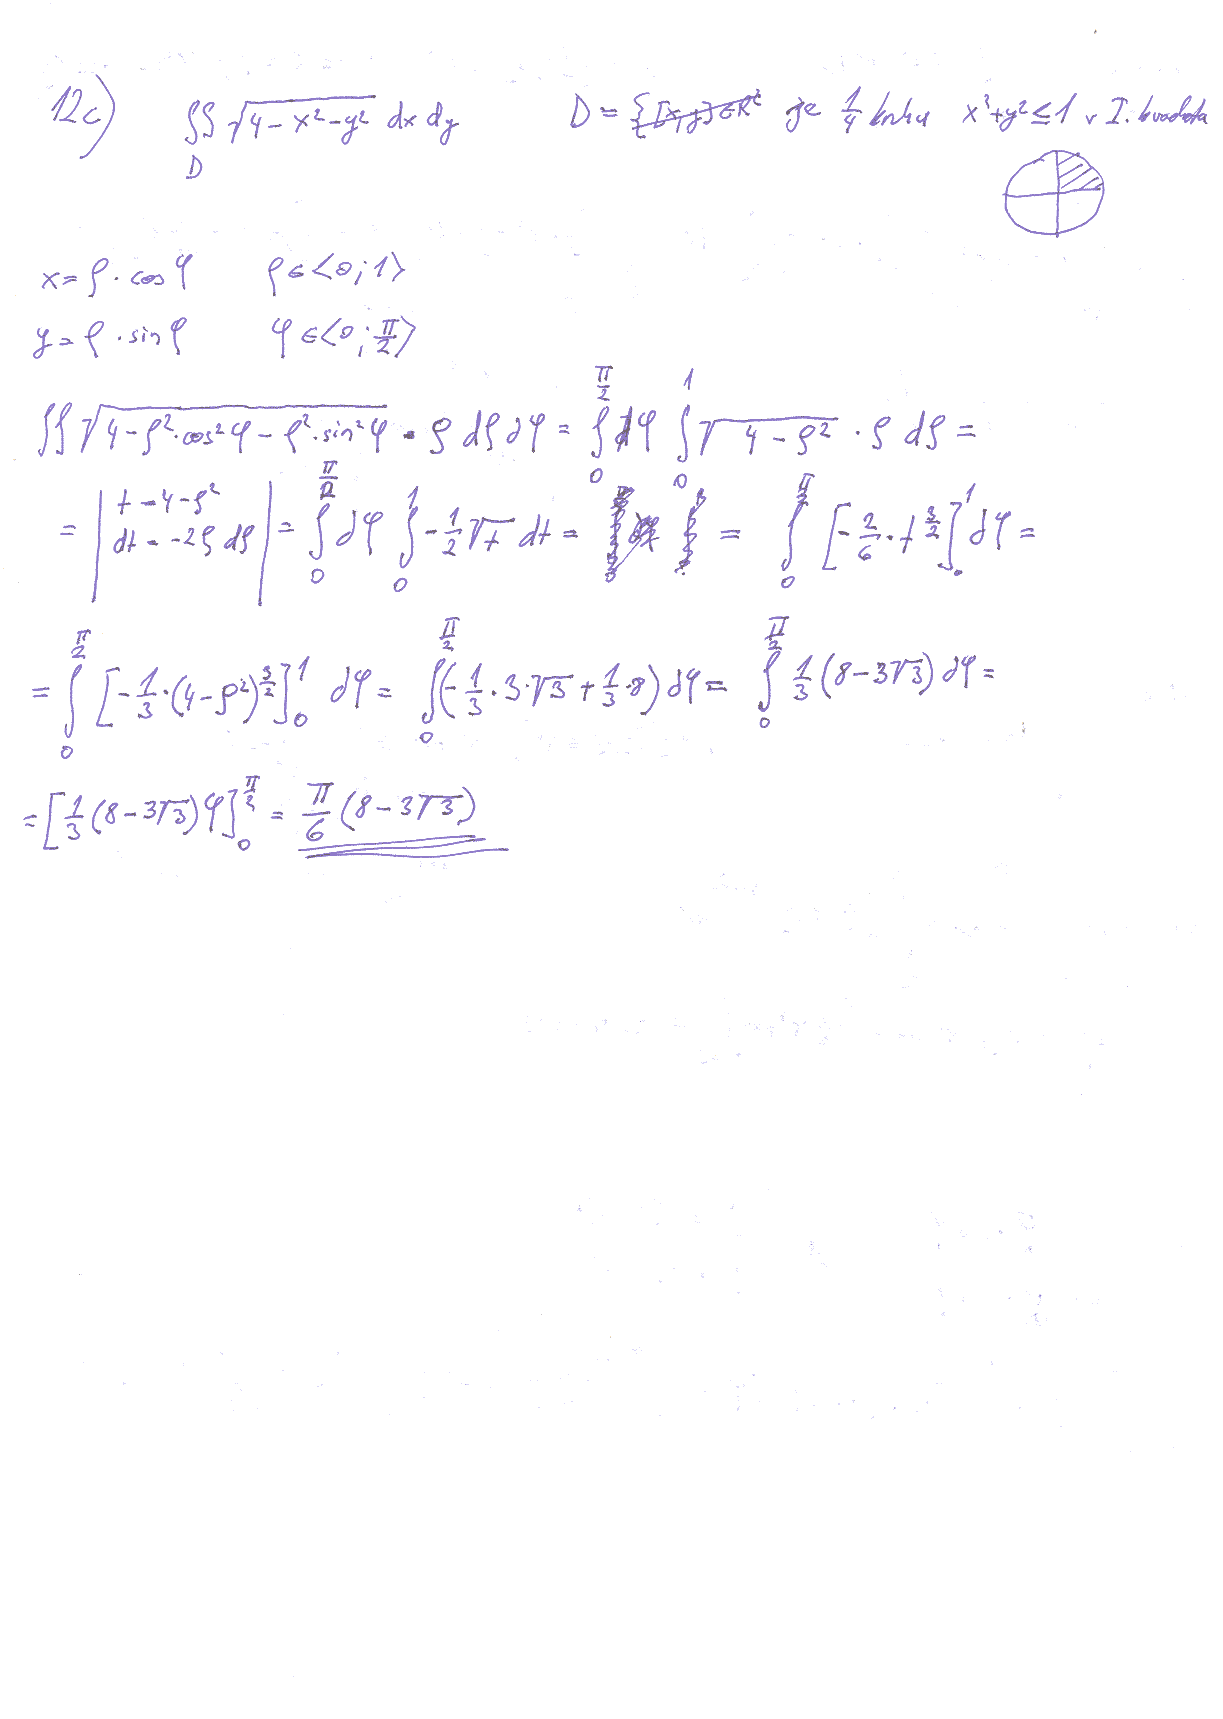 12c) ∬_D √(4-x²-y²) dx dy D = je 1/4 kruhu x²+y² ≤ 1 v I. kvadrantu
x = ρ · cos φ ρ ∈ <0; 1>
y = ρ · sin φ φ ∈ <0; π/2>
∬ √(4-ρ²·cos²φ - ρ²·sin²φ) · ρ dρ dφ = ∫_0^{π/2} dφ ∫_0^1 √(4-ρ²) · ρ dρ =
= | t = 4-ρ² dt = -2ρ dρ | = ∫_0^{π/2} dφ ∫_0^1 -1/2 √t dt = = ∫_0^{π/2} [-2/6 · t^{3/2}]_0^1 dφ =
= ∫_0^{π/2} [-1/3 · (4-ρ²)^{3/2}]_0^1 dφ = ∫_0^{π/2} (-1/3 · 3 · √3 + 1/3 · 8) dφ = ∫_0^{π/2} 1/3 (8-3√3) dφ =
= [1/3 (8-3√3) φ]_0^{π/2} = π/6 (8-3√3)